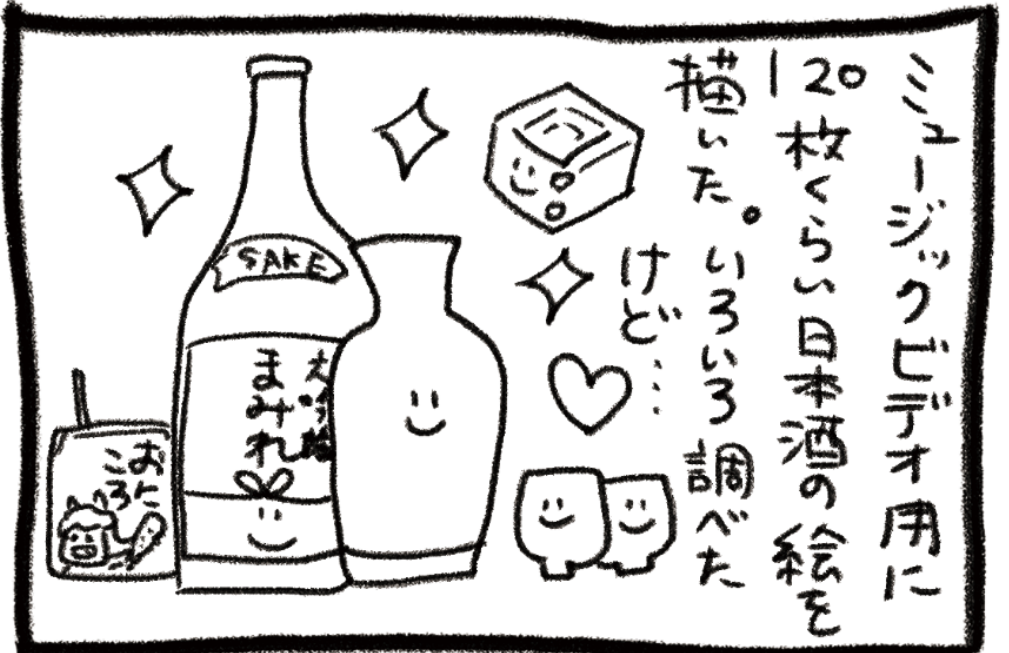 ミュージックビデオ用に
120枚くらい日本酒の絵を
描いた。いろいろ調べた
けど…
SAKE
大吟醸
まみれ
おに
ころ